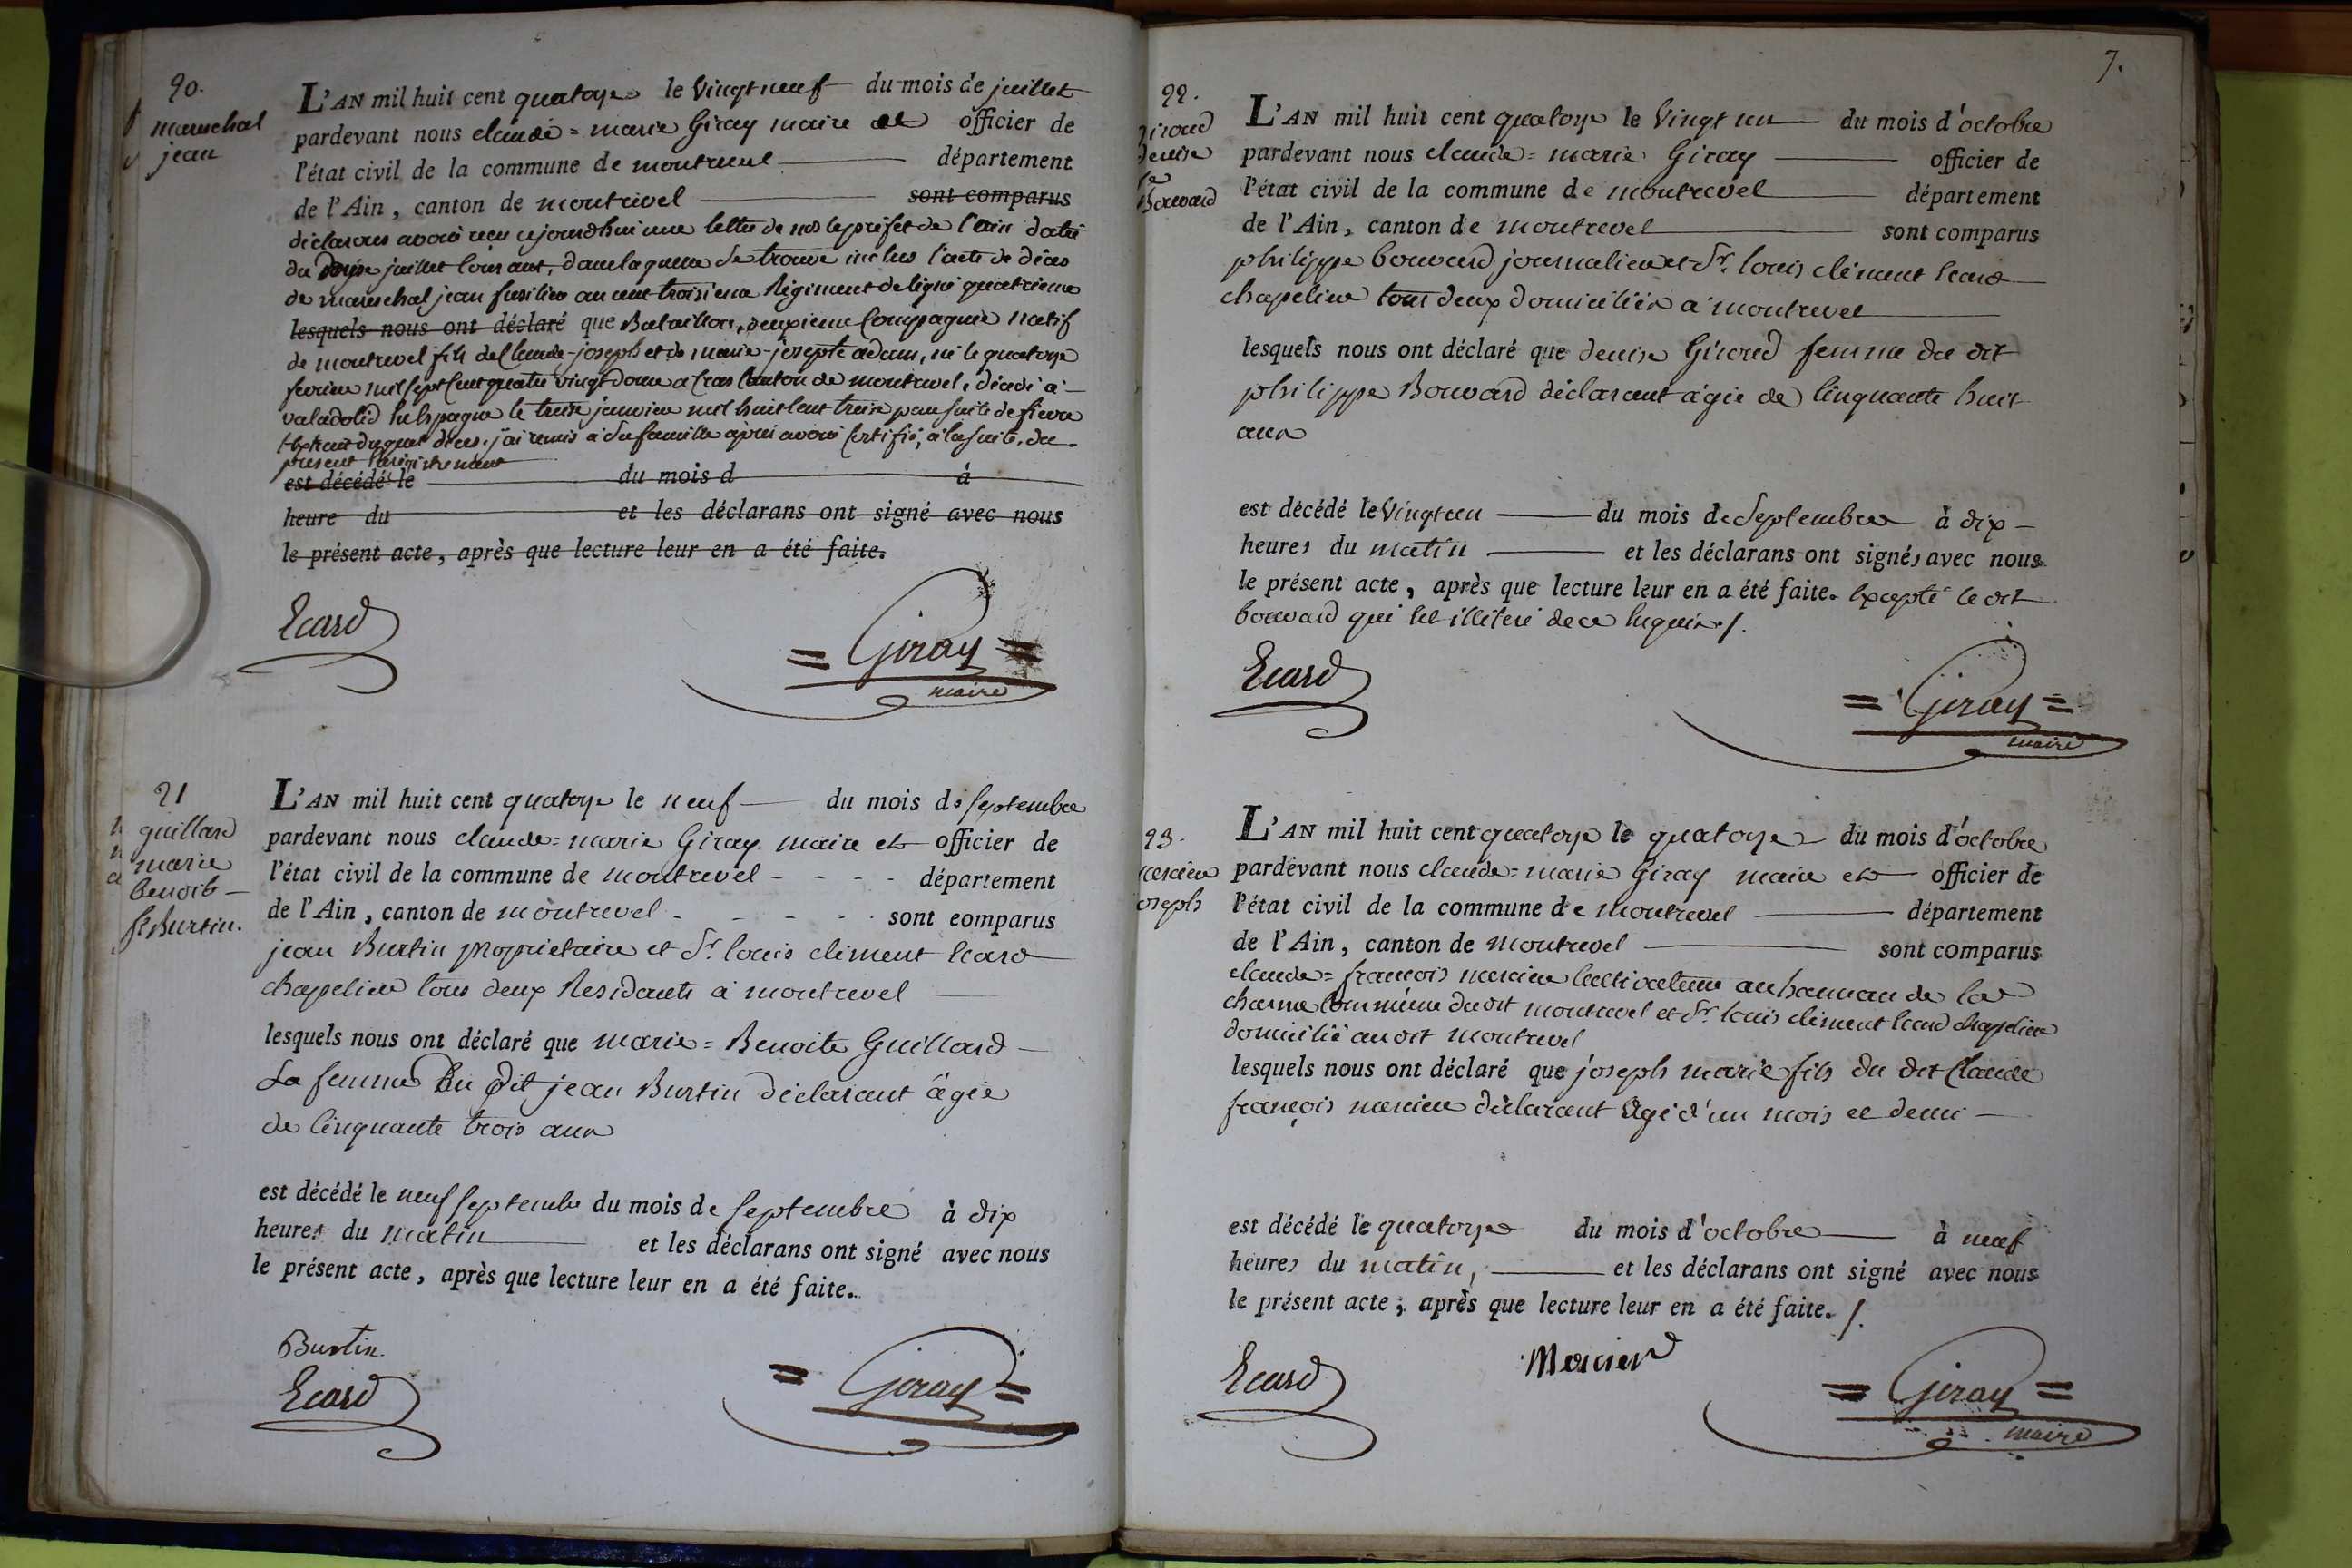 20.
marechal
jean
L'AN mil huit cent quatorze le vingt neuf du mois de juillet
pardevant nous claude=marie Giray maire et officier de
l'état civil de la commune de montrevel département
de l'Ain, canton de montrevel sont comparus
déclarons avoir reçu aujourdhui une lettre de mr le préfet de l'ain datée
du juillet courant, dans laquelle se trouve inclus l'acte de décès
de marechal jean fusilier au cent troisieme Régiment de ligne quatrieme
lesquels nous ont déclaré que Bataillon, deuxieme Compagnie natif
de montrevel fils de Claude-joseph et de marie-josepte adam, né le quatorze
fevrier mil sept Cent quatre vingt douze a Cras Canton de montrevel, décédé à
valadolid En Espagne le treize janvier mil huit Cent treize par suite de fievre
Extrait duquel décès j'ai remis à sa famille après avoir Certifié, à la suite, du
présent Enregistrement
est décédé le du mois d à
heure du et les déclarans ont signé avec nous
le présent acte, après que lecture leur en a été faite.
Ecard
= Giray =
maire
21
guillard
marie
benoite
fe Burtin.
L'AN mil huit cent quatorze le neuf du mois de septembre
pardevant nous claude=marie Giray maire et officier de
l'état civil de la commune de montrevel département
de l'Ain, canton de montrevel sont comparus
jean Burtin propriétaire et Sr. louis clément Ecard
chapelier tous deux Residants à montrevel
lesquels nous ont déclaré que marie=Benoite Guillard
La femme Du Dit jean Burtin déclarant âgée
de Cinquante trois ans
est décédé le neuf septembre du mois de septembre à dix
heures du matin et les déclarans ont signé avec nous
le présent acte, après que lecture leur en a été faite.
Burtin
Ecard
= Giray =
7.
22.
giroud
denise
fe
Bouvard
L'AN mil huit cent quatorze le vingt un du mois d'octobre
pardevant nous claude=marie Giray officier de
l'état civil de la commune de montrevel département
de l'Ain, canton de montrevel sont comparus
philippe bouvard journalier et Sr. louis clément Ecard
chapelier tous deux domiciliés à montrevel
lesquels nous ont déclaré que denise Giroud femme du dit
philippe Bouvard déclarant âgée de Cinquante huit
ans
est décédé le vingt un du mois de Septembre à dix
heures du matin et les déclarans ont signés avec nous
le présent acte, après que lecture leur en a été faite. Excepté le dit
bouvard qui Est illitéré de ce Enquis./.
Ecard
= Giray =
maire
23.
mercier
joseph
L'AN mil huit cent quatorze le quatorze du mois d'octobre
pardevant nous claude=marie Giray maire et officier de
l'état civil de la commune de montrevel département
de l'Ain, canton de montrevel sont comparus
claude=francois mercier Cultivateur au hameau de la
charme Commune du dit montrevel et Sr. louis clément Ecard chapelier
domicilié au dit montrevel
lesquels nous ont déclaré que joseph marie fils du dit Claude
françois mercier déclarant Agé d'un mois et demi
est décédé le quatorze du mois d'octobre à neuf
heures du matin, et les déclarans ont signé avec nous
le présent acte, après que lecture leur en a été faite. /.
Ecard
Mercier
= Giray =
maire